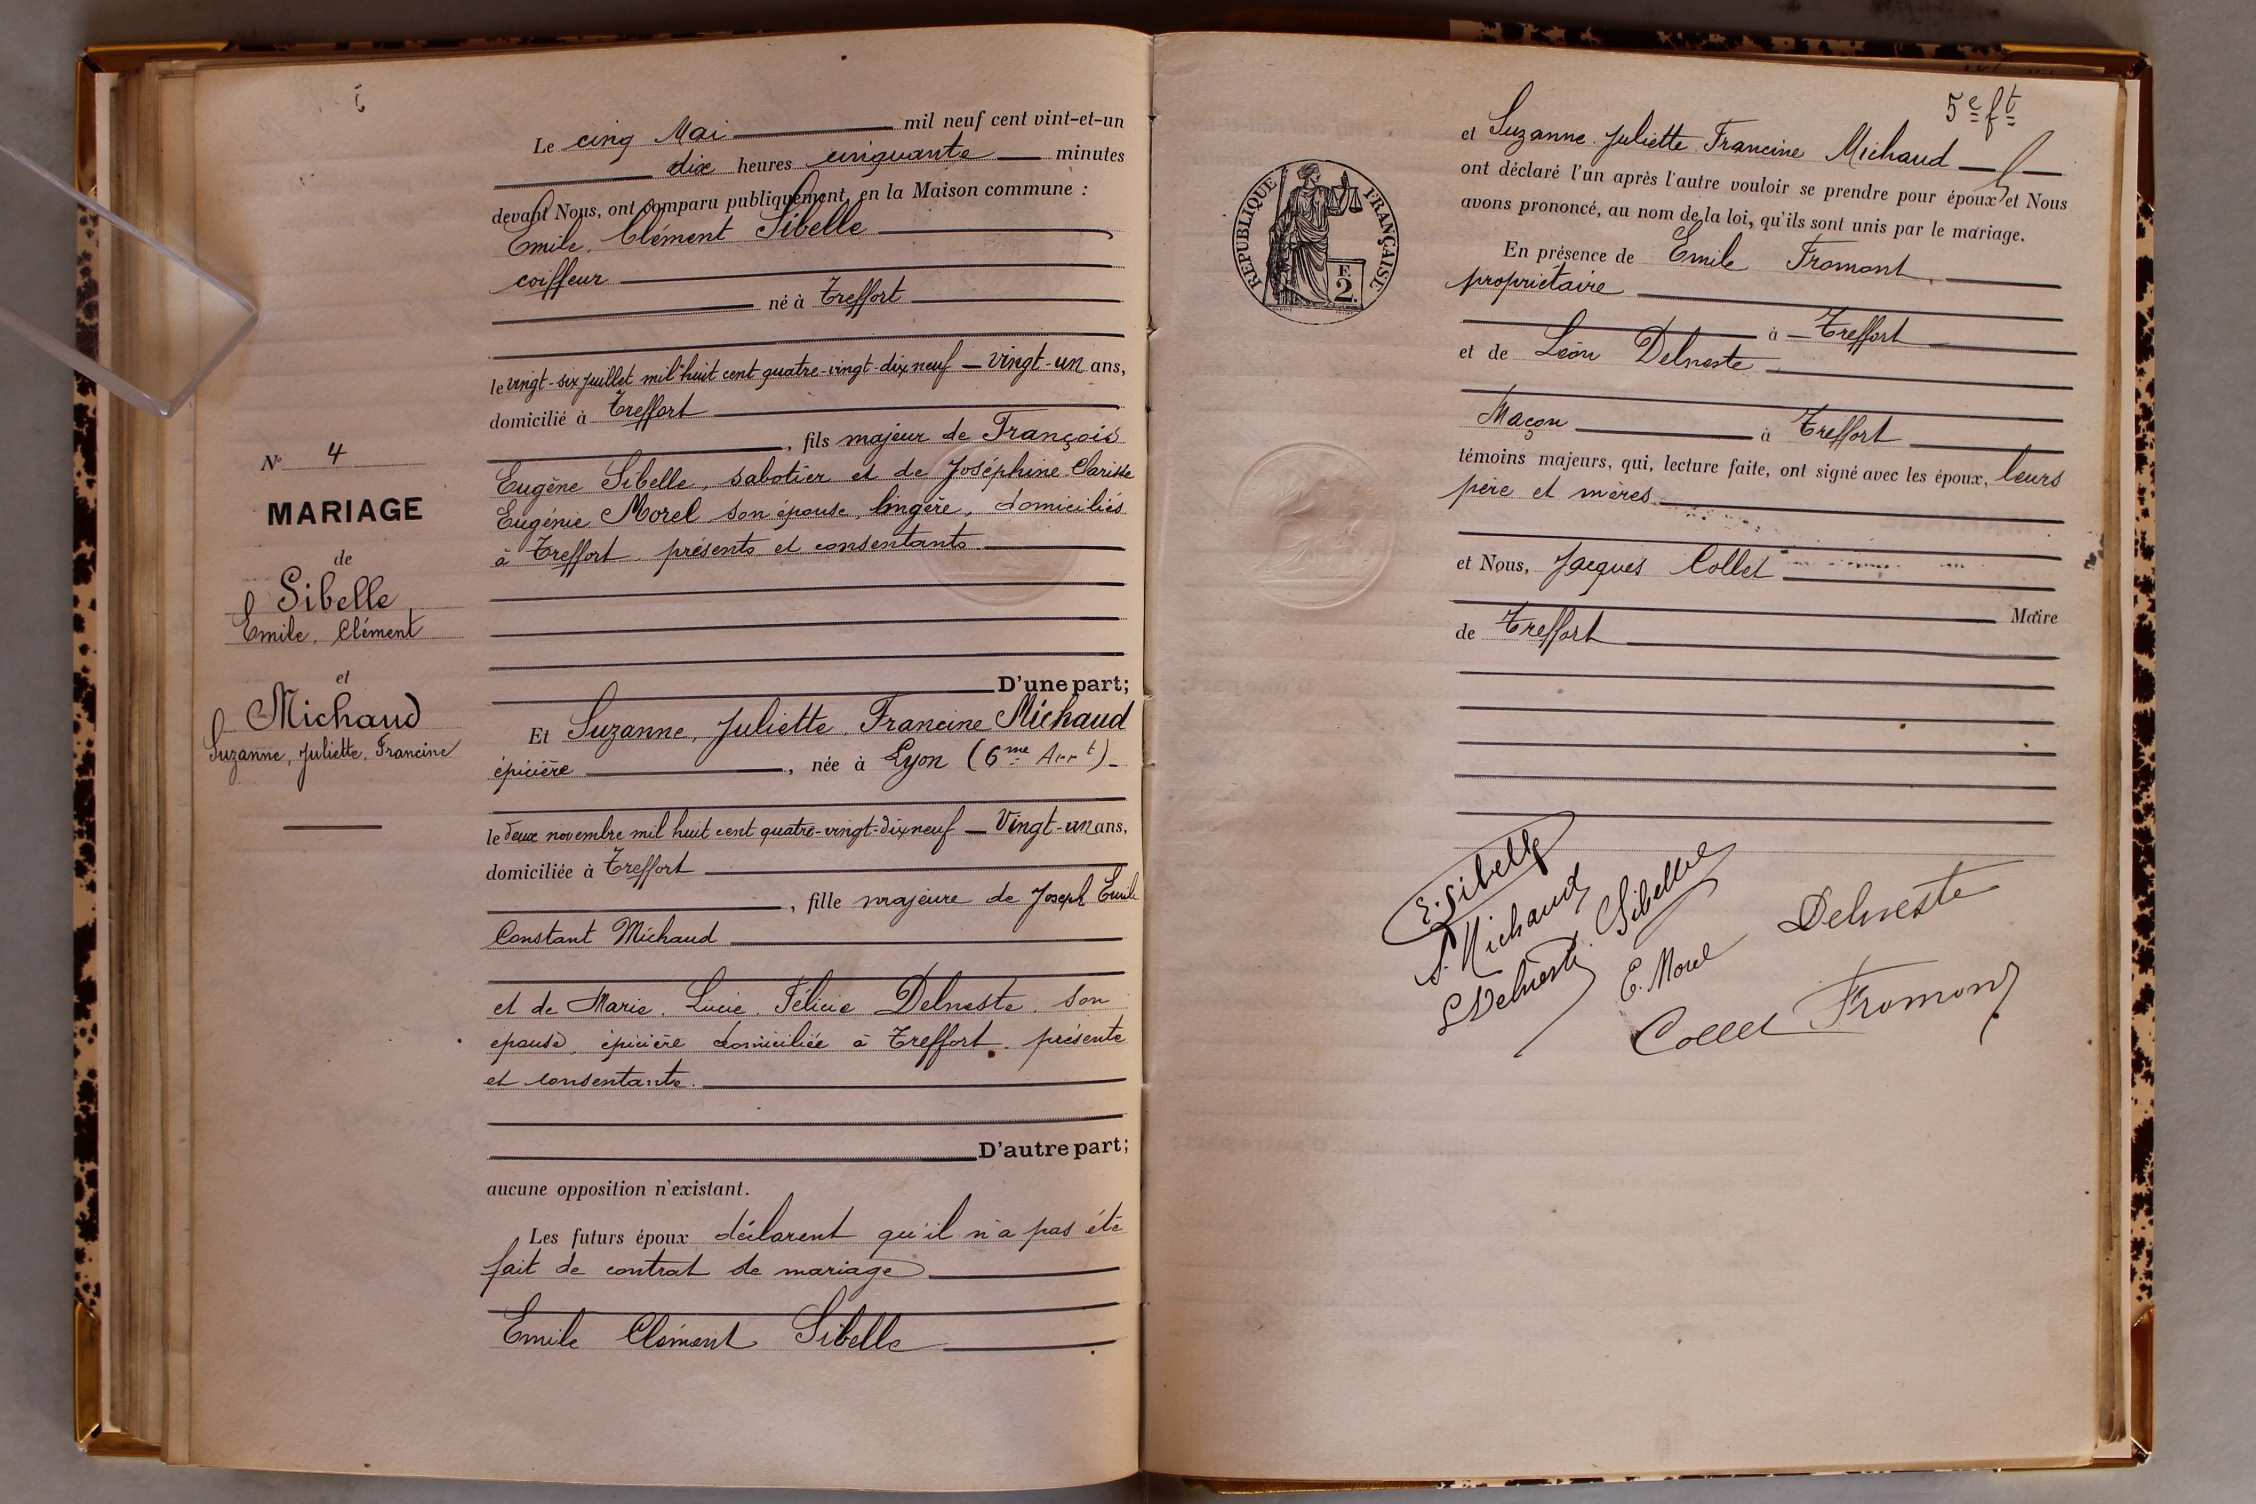 Le cinq Mai mil neuf cent vint-et-un
dix heures cinquante minutes
devant Nous, ont comparu publiquement, en la Maison commune :
Emile, Clément Sibelle
coiffeur
né à Treffort
le vingt-six juillet mil huit cent quatre-vingt-dix neuf — vingt-un ans,
domicilié à Treffort
, fils majeur de François
Eugène Sibelle, sabotier et de Joséphine Clarisse
Eugénie Morel son épouse, lingère, domiciliés
à Treffort présents et consentants
N° 4
MARIAGE
de
Sibelle
Emile, Clément
et
Michaud
Suzanne, Juliette, Francine
D'une part;
Et Suzanne, Juliette, Francine Michaud
épicière, née à Lyon (6me Arrt)
le deux novembre mil huit cent quatre-vingt-dix neuf — Vingt-un ans,
domiciliée à Treffort
, fille majeure de Joseph Emile
Constant Michaud
et de Marie, Lucie, Félicie Delneste, son
épouse, épicière domiciliée à Treffort, présente
et consentante.
D'autre part;
aucune opposition n'existant.
Les futurs époux déclarent qu'il n'a pas été
fait de contrat de mariage
Emile Clément Sibelle
5e ft
et Suzanne, Juliette, Francine Michaud
ont déclaré l'un après l'autre vouloir se prendre pour époux et Nous
avons prononcé, au nom de la loi, qu'ils sont unis par le mariage.
En présence de Emile Fromont
propriétaire
à Treffort
et de Léon Delneste
Maçon à Treffort
témoins majeurs, qui, lecture faite, ont signé avec les époux, leurs
père et mères
et Nous, Jacques Collet
Maire
de Treffort
RÉPUBLIQUE FRANÇAISE
F.
2.
E. Sibelle
S. Michaud
Sibelle
L Delneste
E. Morel
Delneste
Collet
Fromont